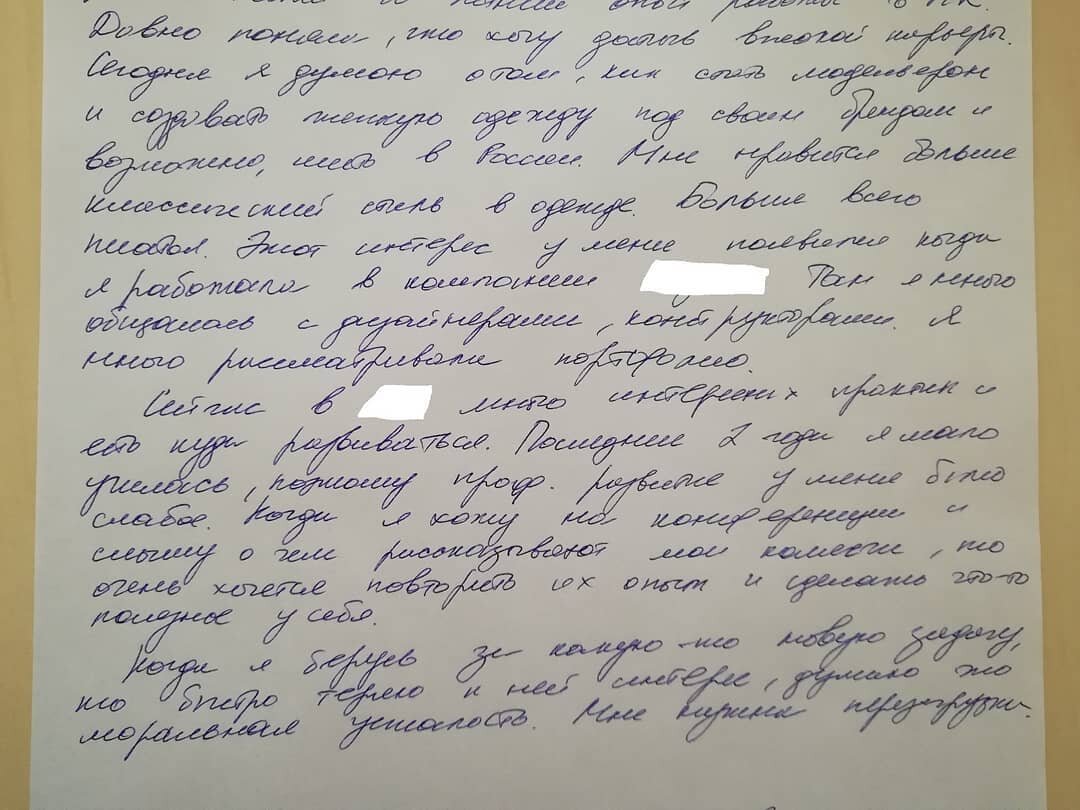 и опыт работы в
Давно поняла, что хочу высокой карьеры.
Сегодня я думаю о том, как стать модельером
и создавать женскую одежду под своим брендом и
возможно, шить в России. Мне нравится больше
классический стиль в одежде. Больше всего
платья. Этот интерес у меня появился когда
я работала в компании Там я много
общалась с дизайнерами, конструкторами. Я
много рассматривала портфолио.
Сейчас в много интересных практик и
есть куда развиваться. Последние 2 года я мало
училась, поэтому проф. развитие у меня было
слабое. Когда я хожу на конференции и
слышу о чем рассказывают мои коллеги, то
очень хочется повторить их опыт и сделать что-то
полезное у себя.
Когда я берусь за какую-то новую задачу,
то быстро теряю к ней интерес, думаю это
моральная усталость. Мне нужна перезагрузка.